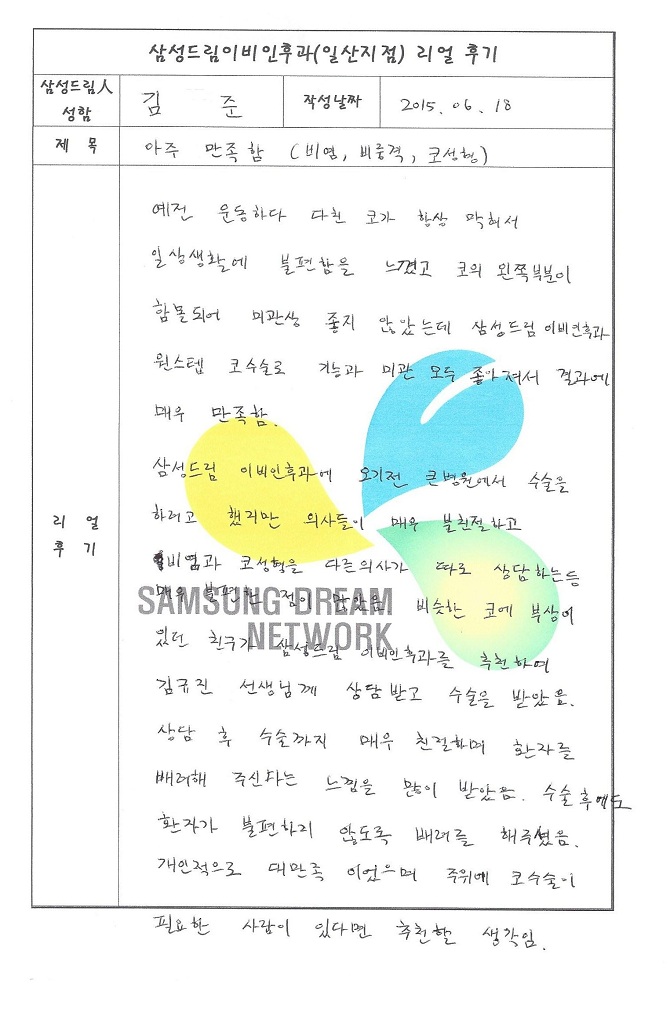 삼성드림이비인후과(일산지점) 리얼 후기
삼성드림人 성함
김 준
작성날짜
2015. 06. 18
제 목
아주 만족함 (비염, 비중격, 코성형)
리 얼 후 기
예전 운동하다 다친 코가 항상 막혀서
일상생활에 불편함을 느꼈고 코의 왼쪽부분이
함몰되어 미관상 좋지 않았는데 삼성드림 이비인후과
원스텝 코수술로 기능과 미관 모두 좋아져서 결과에
매우 만족함.
삼성드림 이비인후과에 오기전 큰병원에서 수술을
하려고 했지만 의사들이 매우 불친절하고
비염과 코성형을 다른의사가 따로 상담하는등
매우 불편한 점이 많았음 비슷한 코에 부상이
있던 친구가 삼성드림 이비인후과를 추천하여
김규진 선생님께 상담받고 수술을 받았음.
상담 후 수술까지 매우 친절하며 환자를
배려해 주신다는 느낌을 많이 받았음. 수술후에도
환자가 불편하지 않도록 배려를 해주셨음.
개인적으로 대만족 이었으며 주위에 코수술이
필요한 사람이 있다면 추천할 생각임.
SAMSUNG DREAM
NETWORK